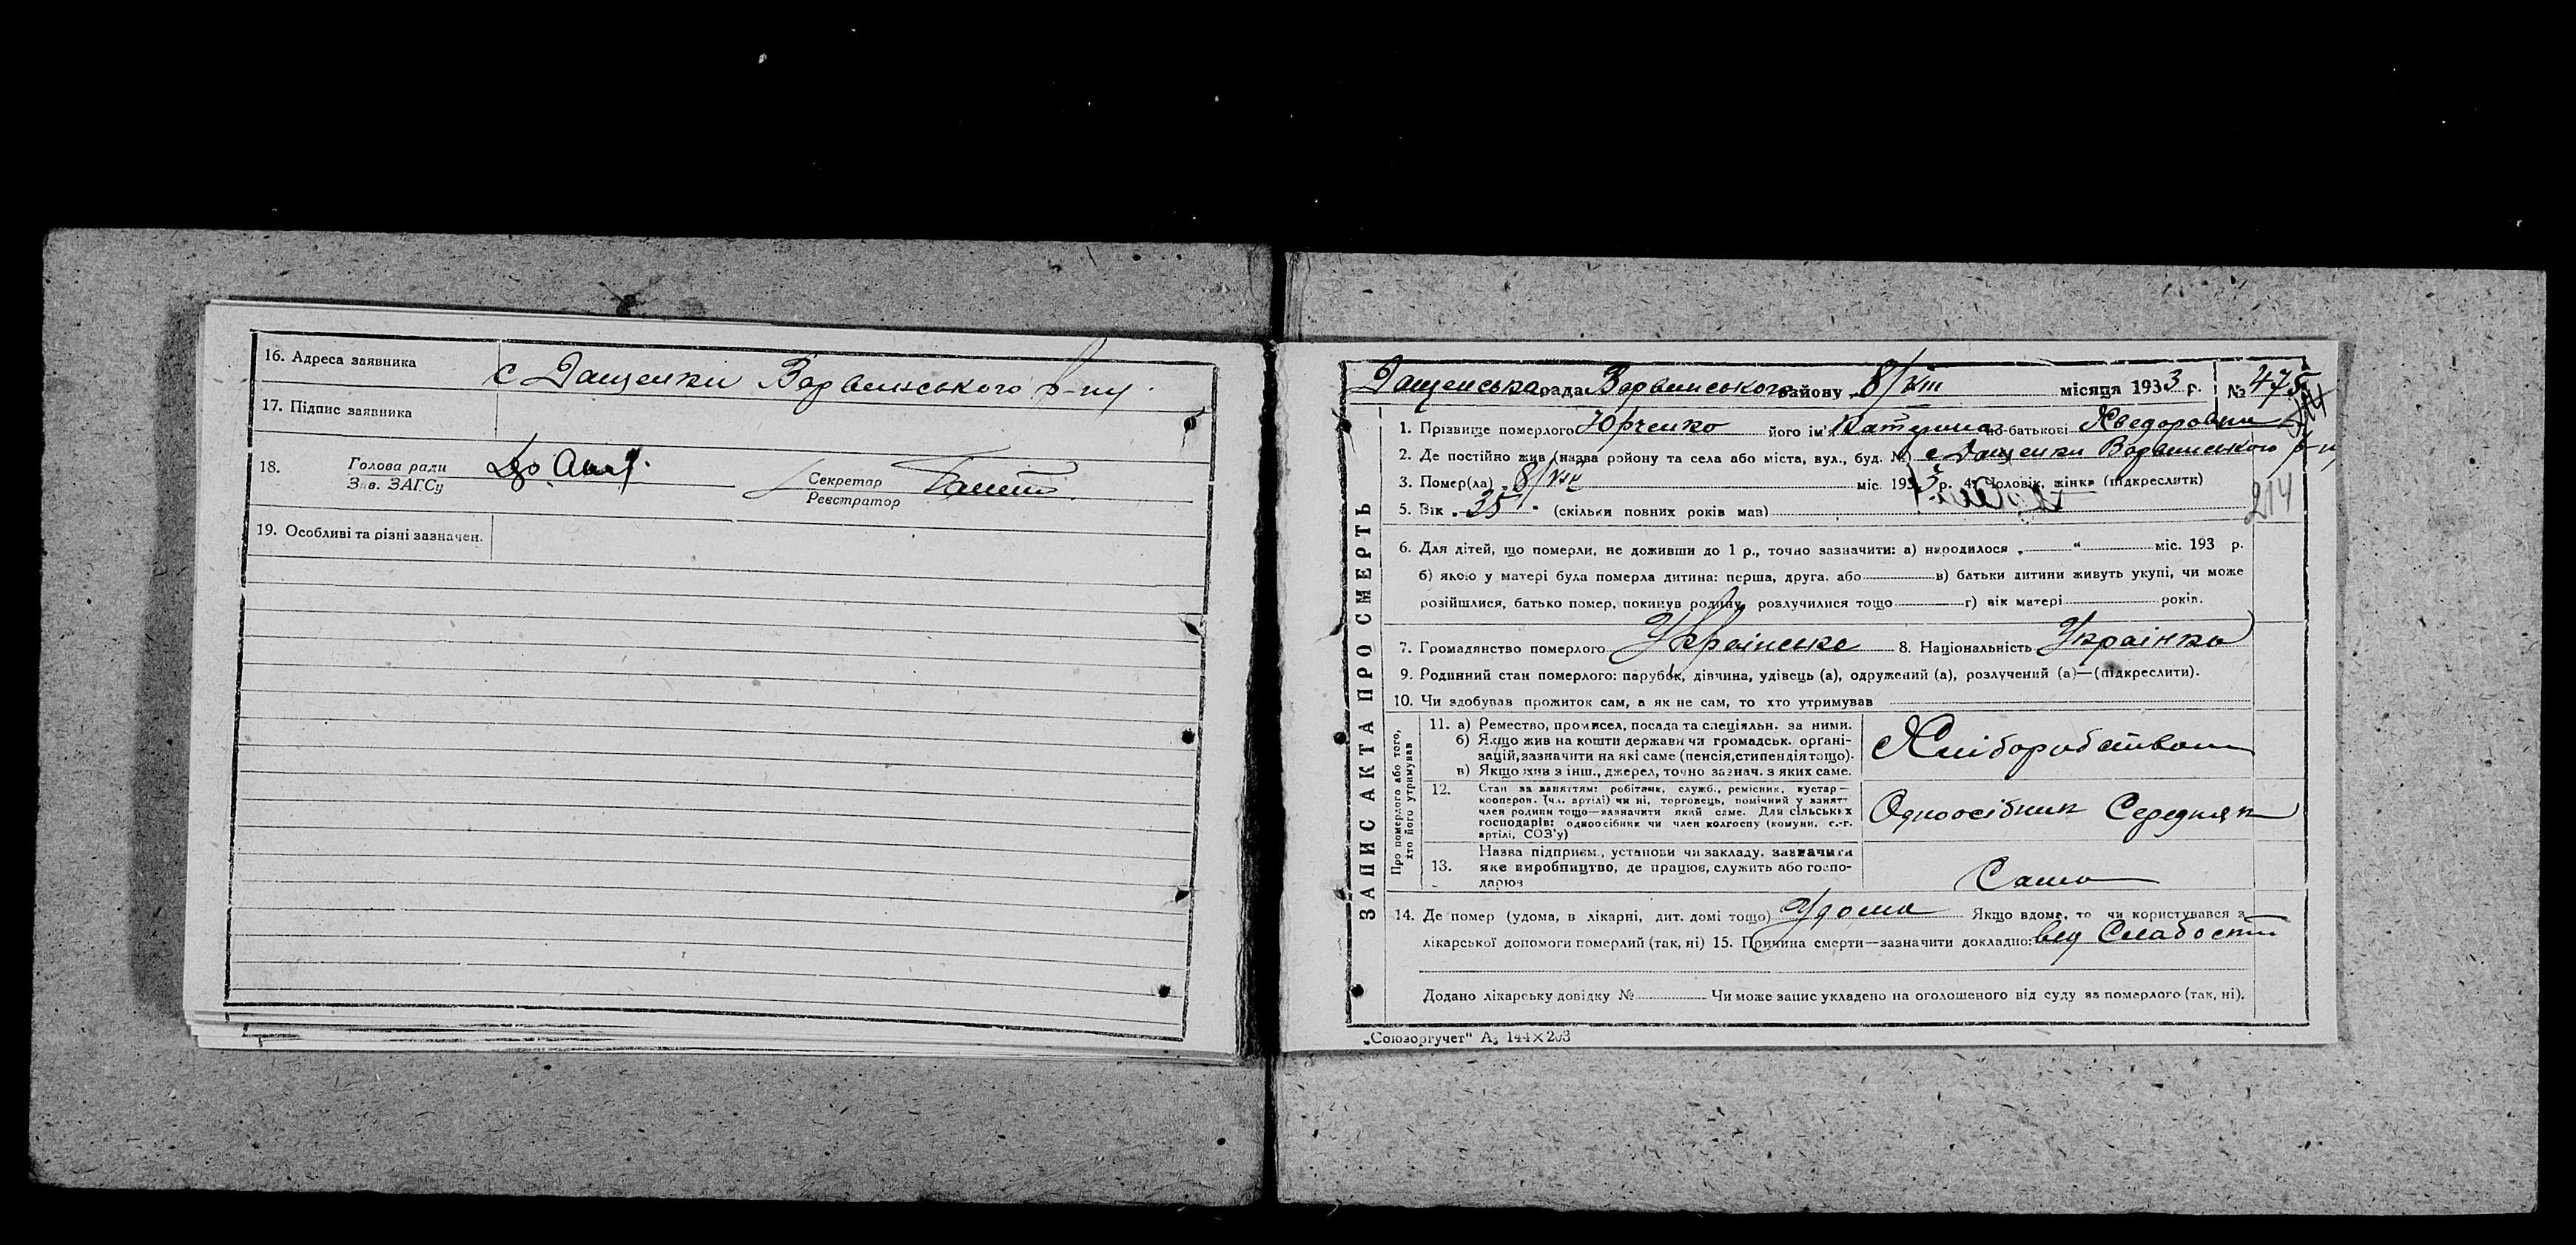 16. Адреса заявника с Дащенки Варвинського р-ну
17. Підпис заявника
18. Голова ради
Зав. ЗАГСу
Секретар
Реєстратор
19. Особливі та різні зазначен.
ЗАПИС АКТА ПРО СМЕРТЬ
Дащенська рада Варвинського району 8/VIII місяця 1933 р. № 475
1. Прізвище померлого Юрченко його ім'я Катерина по-батькові Хведоровна
2. Де постійно жив (назва району та села або міста, вул., буд. №) с Дащенки Варвинського р-н
3. Помер(ла) „ 8/VIII міс. 1933 р. 4. Чоловік, жінка (підкреслити)
214
5. Вік „ 35 “ (скільки повних років маз)
6. Для дітей, що померли, не доживши до 1 р., точно зазначити: а) народилося „ “ міс. 193 р.
б) якою у матері була померла дитина: перша, друга, або в) батьки дитини живуть укупі, чи може
розійшлися, батько помер, покинув родину, розлучилися тощо г) вік матері років.
7. Громадянство померлого Українське 8. Національність Українка
9. Родинний стан померлого: парубок, дівчина, удівець (а), одружений (а), розлучений (а)—(підкреслити).
10. Чи здобував прожиток сам, а як не сам, то хто утримував
Про померлого або того, хто його утримував
11. а) Ремество, промисел, посада та спеціяльн. за ними.
б) Якщо жив на кошти держави чи громадськ. органі-
зацій, зазначити на які саме (пенсія, стипендія тощо).
в) Якщо жив з інш., джерел, точно зазнач. з яких саме.
Хліборобством
12. Стан за заняттям: робітник, служб., ремісник, кустар—
кооперов. (чл. артілі) чи ні, торговець, помічний у занят-
член родини тощо—зазначити який саме. Для сільських
господарів: одноосібник чи член колгоспу (комуни, с.-г.
артілі, СОЗ'у)
Одноосібник Середняк
13. Назва підприєм., установи чи закладу, зазначити
яке виробництво, де працює, служить або госпо-
дарює
Сама
14. Де помер (удома, в лікарні, дит. домі тощо) Удома Якщо вдома, то чи користувався з
лікарської допомоги померлий (так, ні) 15. Причина смерти—зазначити докладно: від Слабости
Додано лікарську довідку № Чи може запис укладено на оголошеного від суду за померлого (так, ні).
„Союзоргучет“ А₅ 144×203